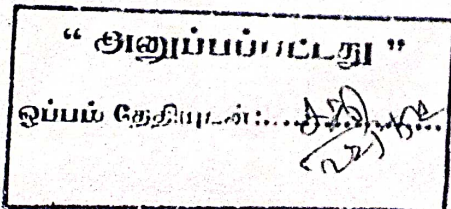 “ அனுப்பப்பட்டது ”
ஒப்பம் தேதியுடன்:....